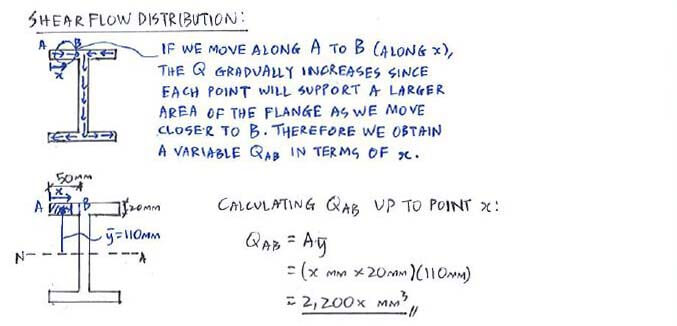 SHEAR FLOW DISTRIBUTION:
A B
x
IF WE MOVE ALONG A TO B (ALONG x),
THE Q GRADUALLY INCREASES SINCE
EACH POINT WILL SUPPORT A LARGER
AREA OF THE FLANGE AS WE MOVE
CLOSER TO B. THEREFORE WE OBTAIN
A VARIABLE QAB IN TERMS OF x.
50MM
x
A B
20MM
ȳ=110MM
N A
CALCULATING QAB UP TO POINT x:
QAB = A·ȳ
= (x MM × 20MM)(110MM)
= 2,200x MM³